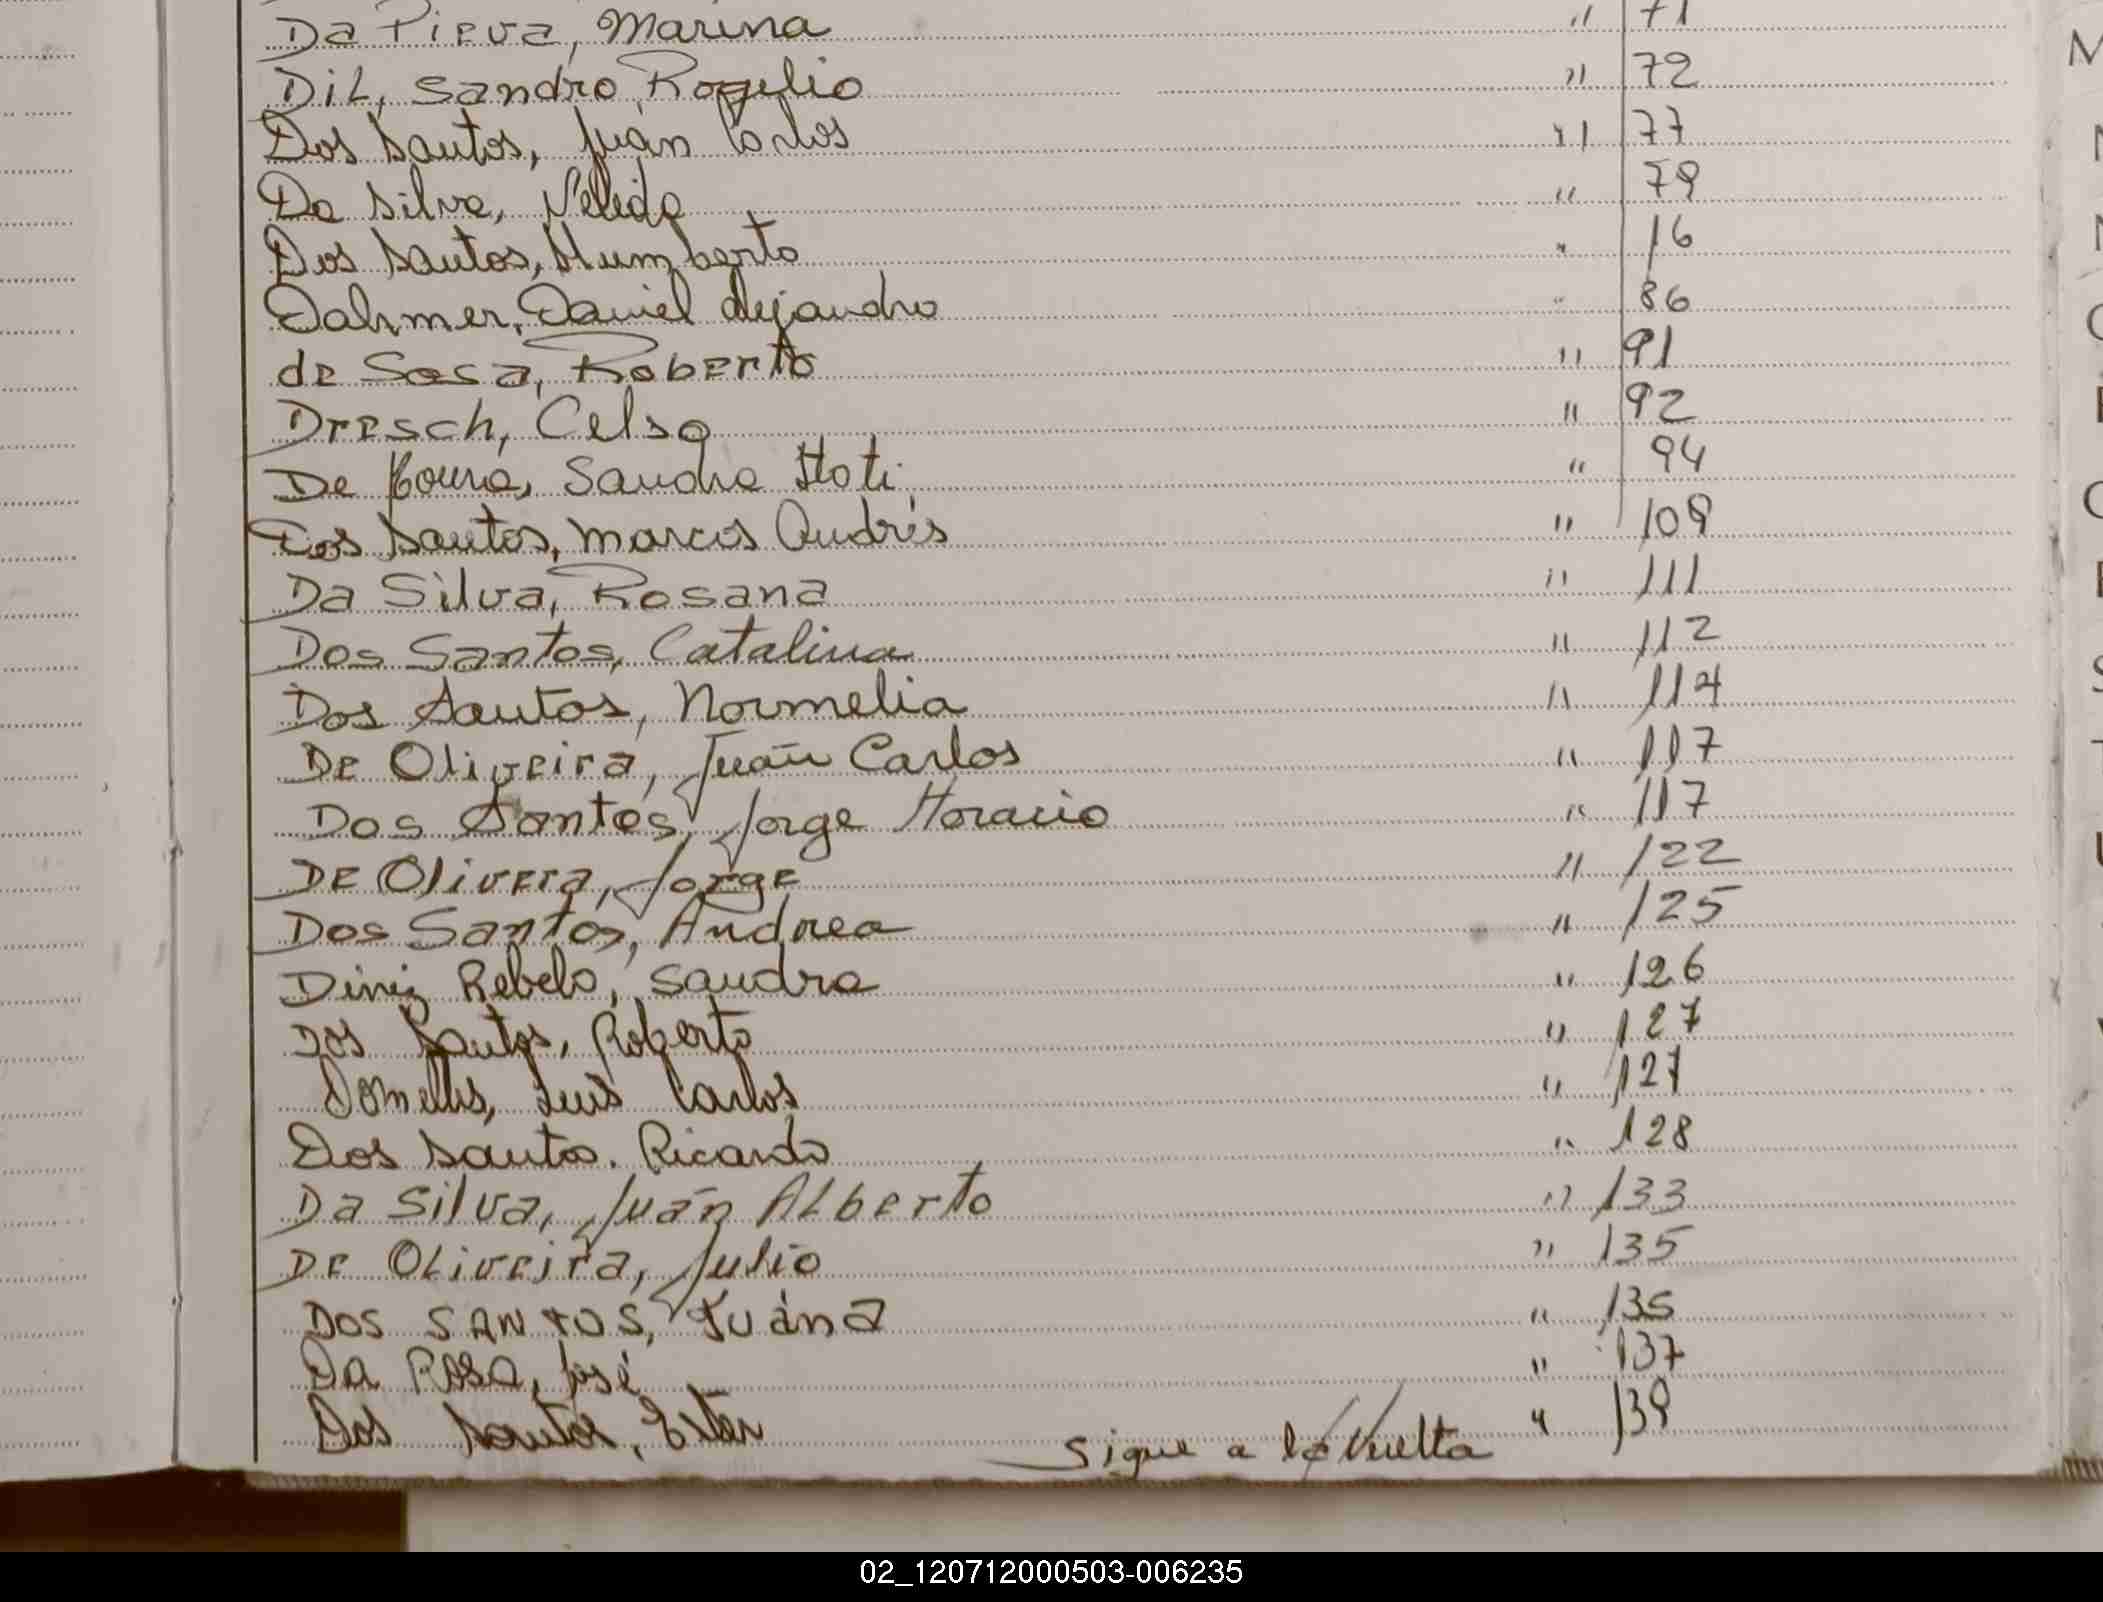 Da Pieva, Marina " 71
Dil, Sandro Rogelio " 72
Dos Santos, Juan Carlos " 77
Da Silva, Nelida " 79
Dos Santos, Humberto " 16
Dahmer, Daniel Alejandro " 86
de Sosa, Roberto " 91
Dresch, Celso " 92
De Moura, Sandra " 94
Dos Santos, Marcos Andrés " 109
Da Silva, Rosana " 111
Dos Santos, Catalina " 112
Dos Santos, Normelia " 114
De Oliveira, Juan Carlos " 117
Dos Santos, Jorge Horacio " 117
De Olivera, Jorge " 122
Dos Santos, Andrea " 125
Diniz Rebelo, Sandra " 126
Dos Santos, Roberto " 127
Luis Carlos " 127
Dos Santos. Ricardo " 128
Da Silva, Juan Alberto " 133
De Oliveira, Julio " 135
Dos Santos, Juana " 135
Da Rosa, José " 137
Dos Santos, Ester " 139
Sigue a la Vuelta
02_120712000503-006235